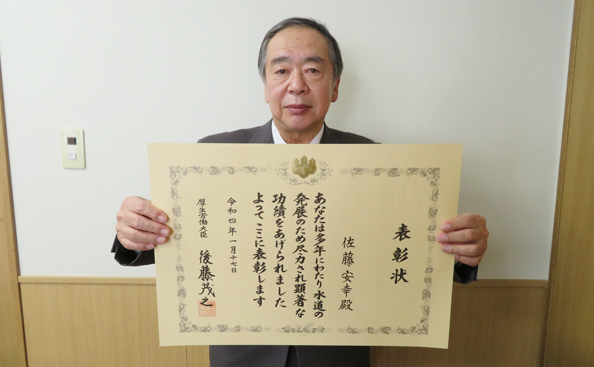 表彰状
佐藤安幸殿
あなたは多年にわたり水道の
発展のため尽力され顕著な
功績をあげられました
よってここに表彰します
令和四年一月十七日
厚生労働大臣 後藤茂之